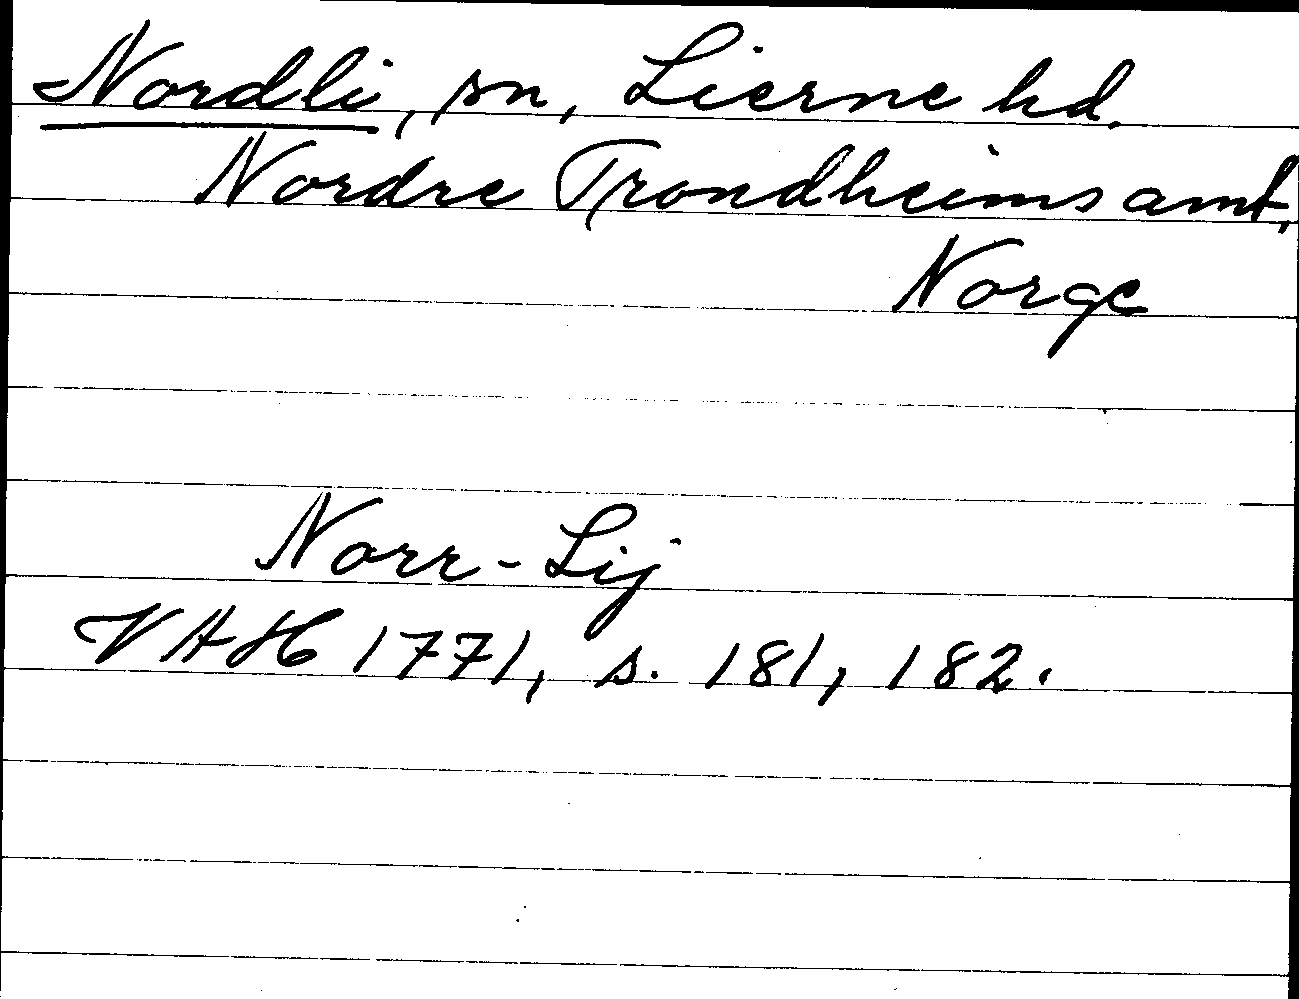 Nordli, sn, Lierne hd.
Nordre Trondheims amt,
Norge
Norr-Lij
VAH 1771, s. 181, 182.